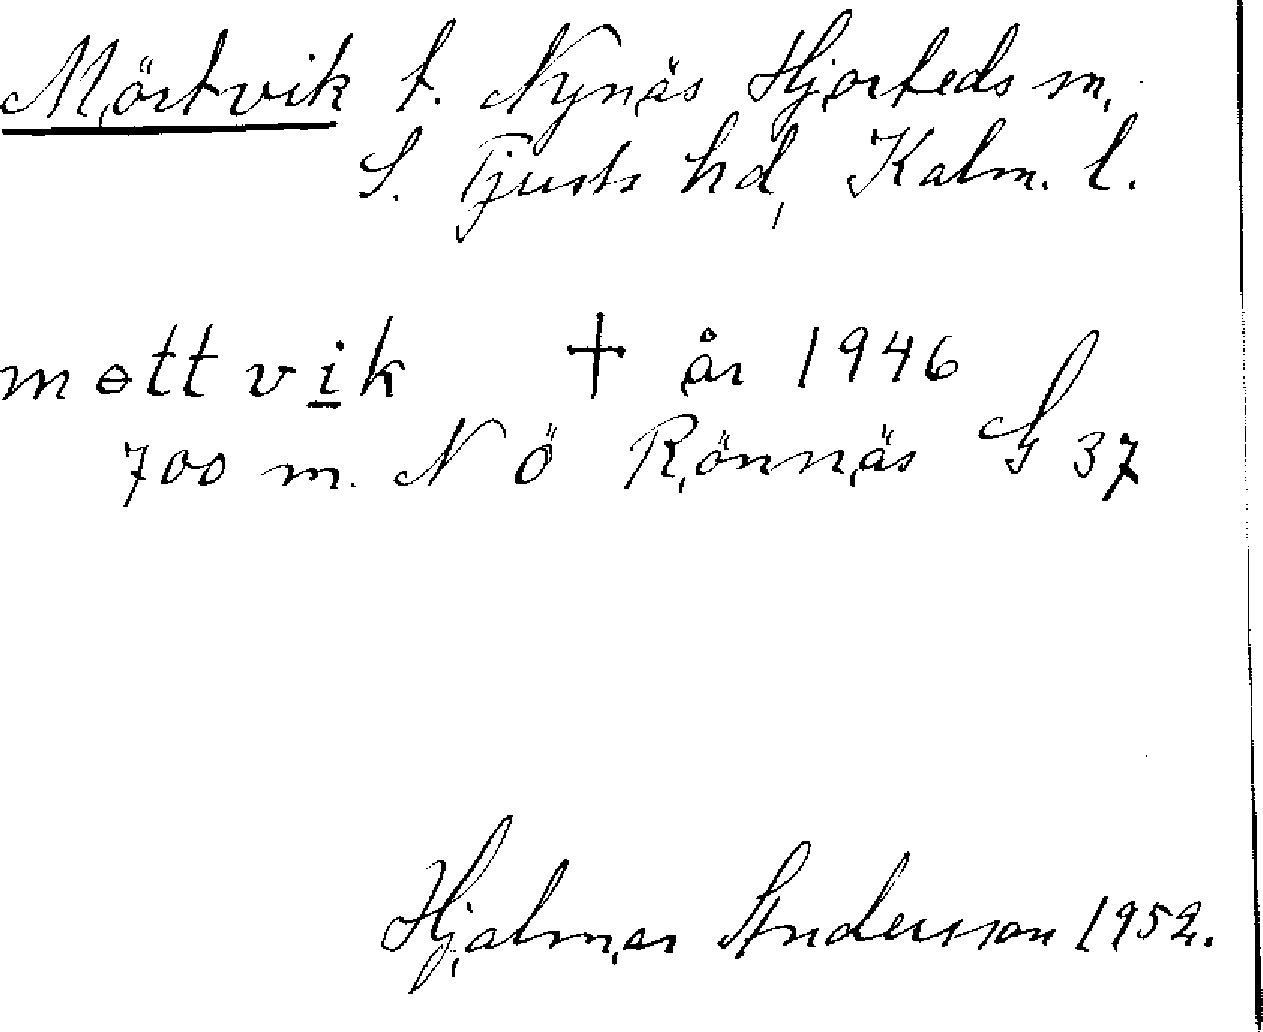 Mörtvik t. Nynäs Hjorteds sn.
S. Tjusts hd, Kalm. l.
mɵttvik † år 1946
700 m. N Ö Rönnäs G 37
Hjalmar Andersson 1952.